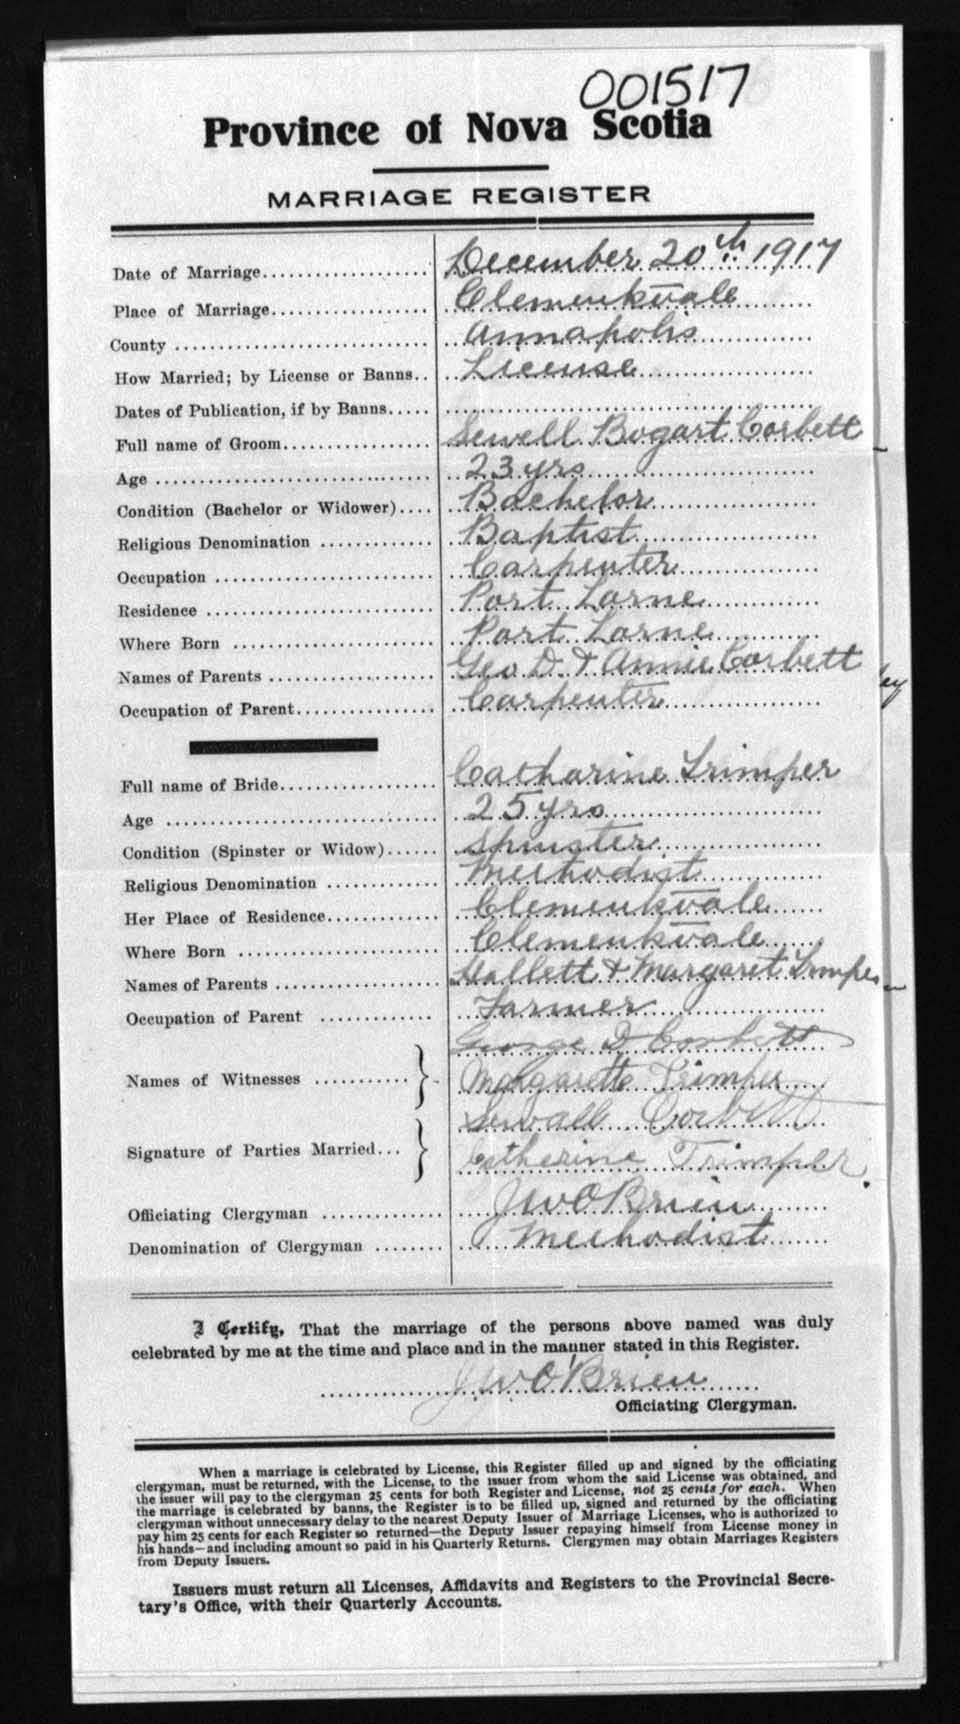 001517
Province of Nova Scotia
MARRIAGE REGISTER
Date of Marriage.................... December 20th 1917
Place of Marriage.................. Clementsvale
County ............................ Annapolis
How Married; by License or Banns.. License
Dates of Publication, if by Banns.....
Full name of Groom................. Sewell Bogart Corbett
Age ............................... 23 yrs
Condition (Bachelor or Widower).... Bachelor
Religious Denomination ............. Baptist
Occupation ......................... Carpenter
Residence .......................... Port Lorne
Where Born ....................... Port Lorne
Names of Parents .................. Geo D. & Annie Corbett
Occupation of Parent................ Carpenter
Full name of Bride.................. Catharine Trimper
Age ............................... 25 yrs
Condition (Spinster or Widow)...... Spinster
Religious Denomination ............ Methodist
Her Place of Residence............. Clementsvale
Where Born ....................... Clementsvale
Names of Parents .................. Hallett & Margaret Trimper
Occupation of Parent ............. Farmer
George D Corbett
Names of Witnesses ........... } Margarette Trimper
Sewall Corbett
Signature of Parties Married... } Catherine Trimper.
Officiating Clergyman .............. J W O'Brien
Denomination of Clergyman ........ Methodist
I Certify, That the marriage of the persons above named was duly
celebrated by me at the time and place and in the manner stated in this Register.
J W O'Brien
Officiating Clergyman.
When a marriage is celebrated by License, this Register filled up and signed by the officiating
clergyman, must be returned, with the License, to the issuer from whom the said License was obtained, and
the issuer will pay to the clergyman 25 cents for both Register and License, not 25 cents for each. When
the marriage is celebrated by banns, the Register is to be filled up, signed and returned by the officiating
clergyman without unnecessary delay to the nearest Deputy Issuer of Marriage Licenses, who is authorized to
pay him 25 cents for each Register so returned—the Deputy Issuer repaying himself from License money in
his hands—and including amount so paid in his Quarterly Returns. Clergymen may obtain Marriages Registers
from Deputy Issuers.
Issuers must return all Licenses, Affidavits and Registers to the Provincial Secre-
tary's Office, with their Quarterly Accounts.